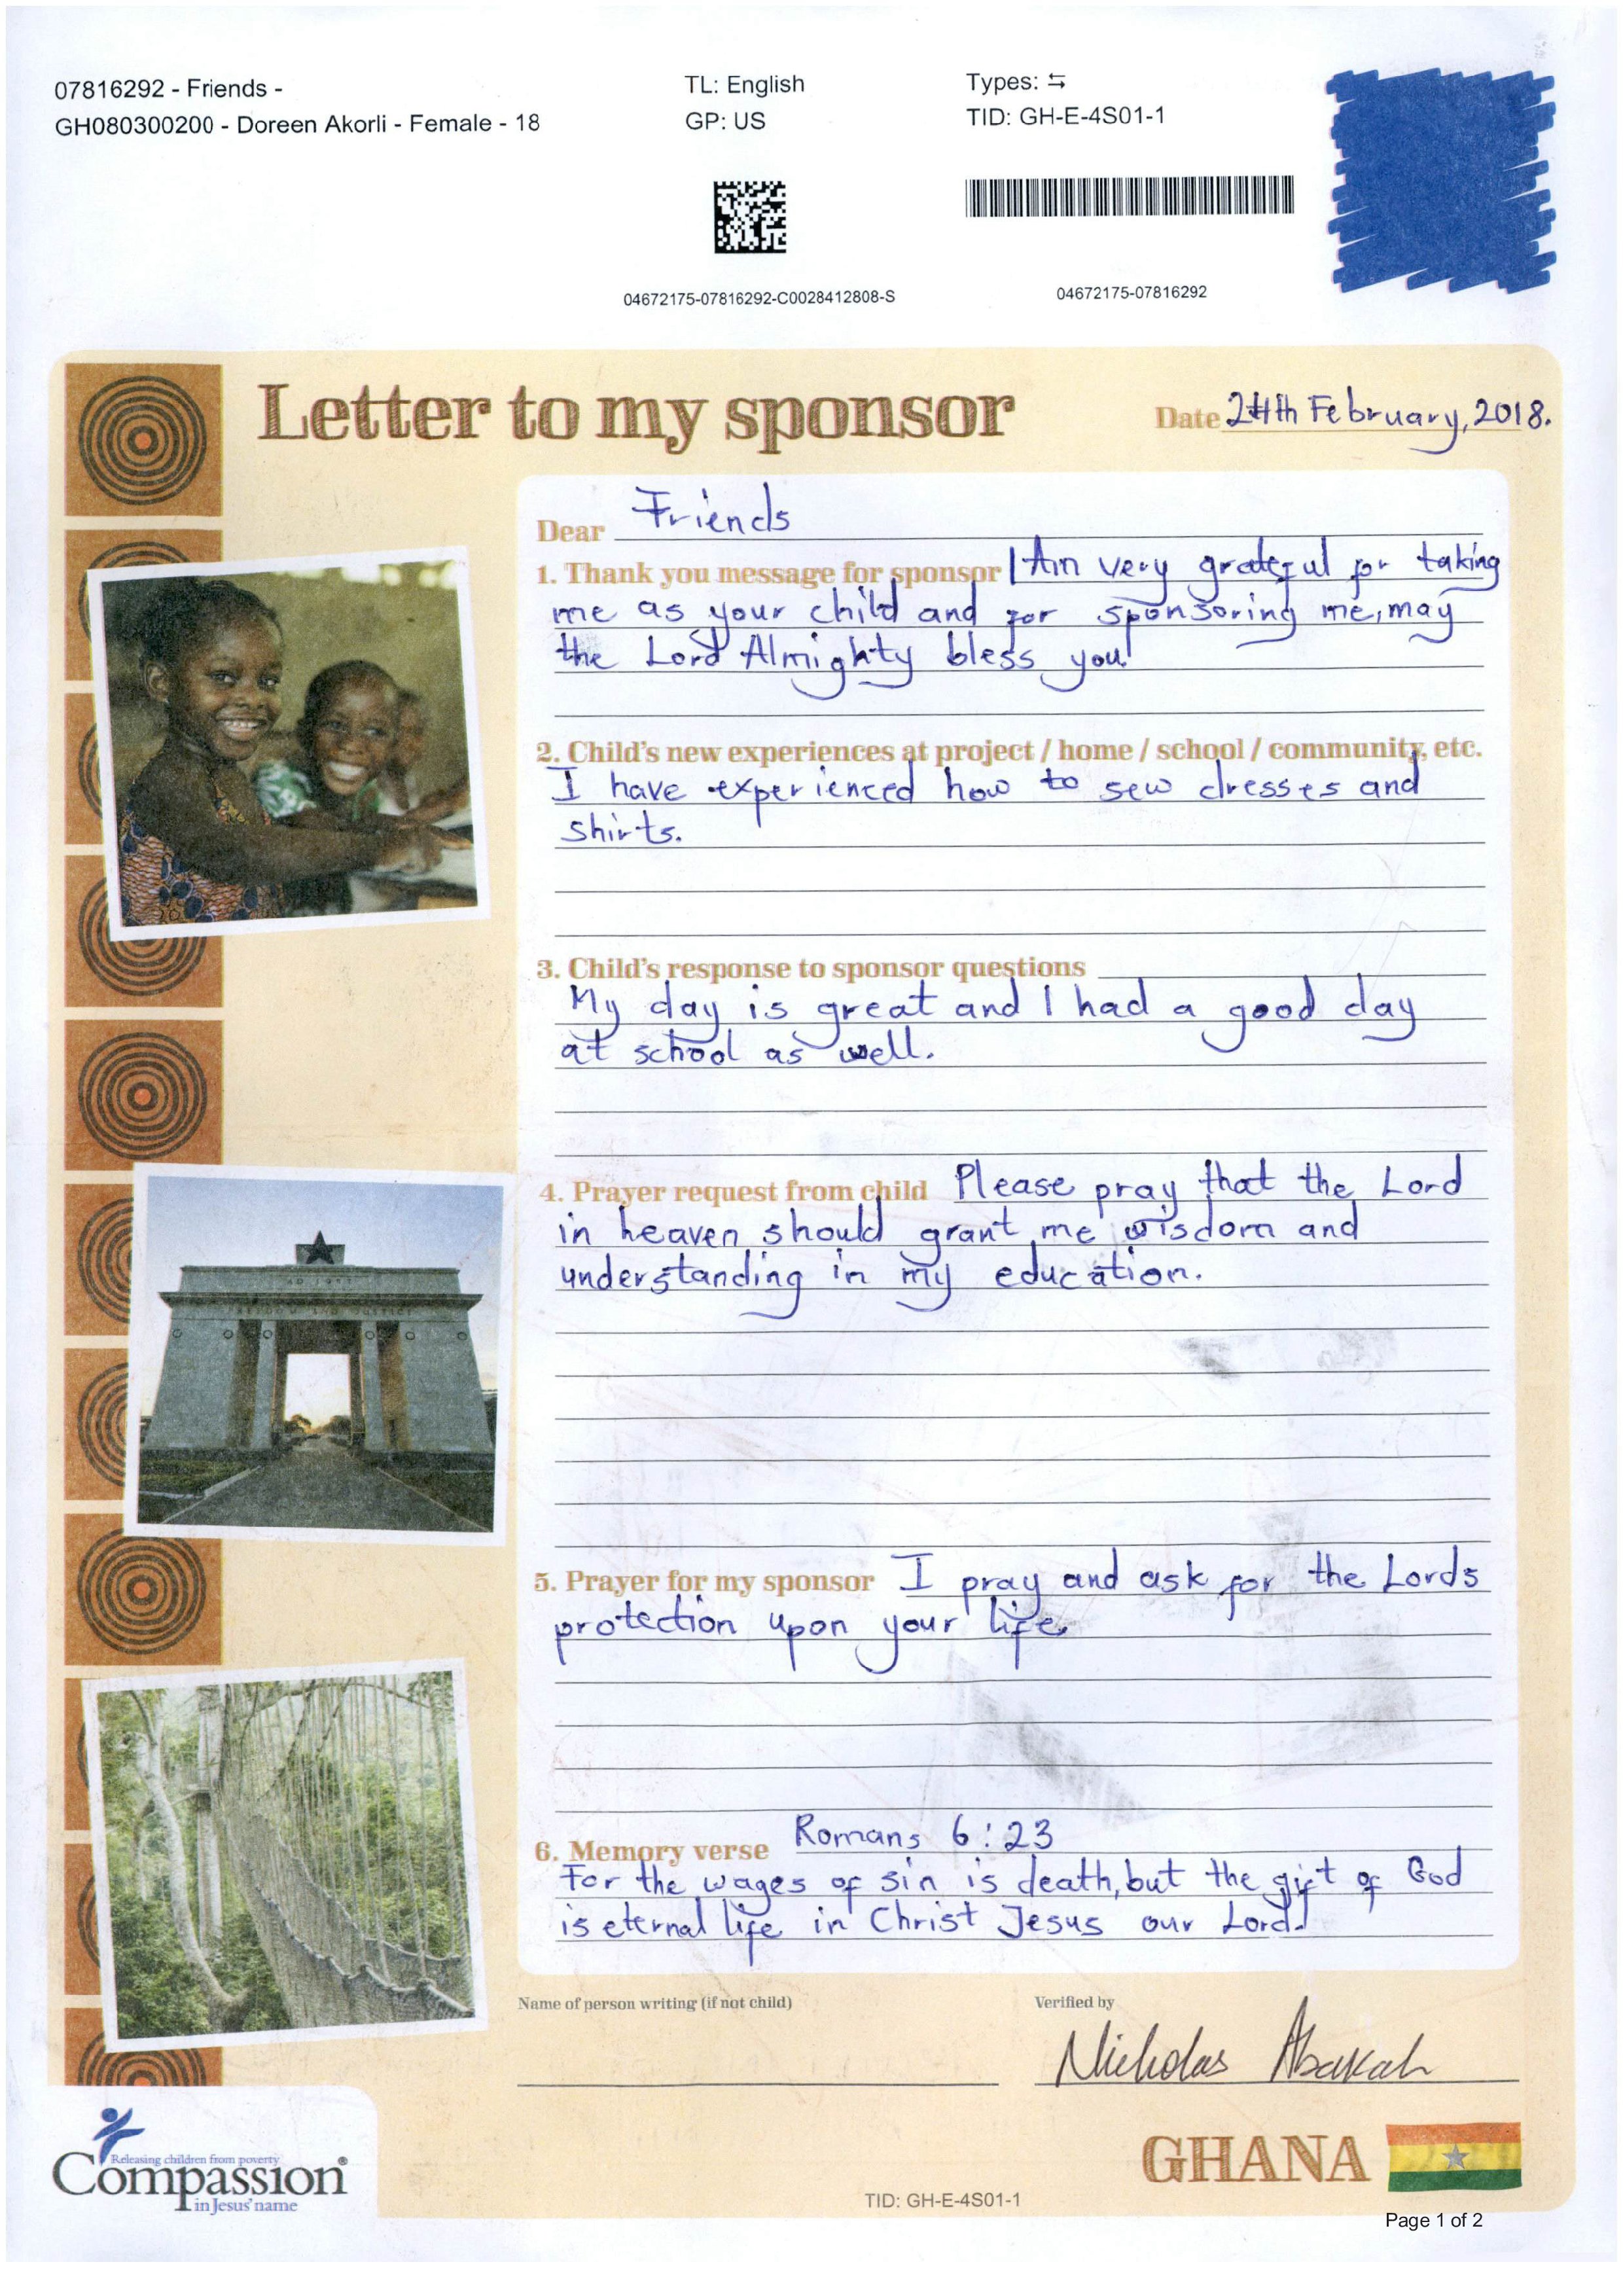 07816292 - Friends -
GH080300200 - Doreen Akorli - Female - 18
TL: English
GP: US
Types: ⇆
TID: GH-E-4S01-1
04672175-07816292-C0028412808-S
04672175-07816292
Letter to my sponsor
Date 24th February, 2018.
Dear Friends
1. Thank you message for sponsor I Am very grateful for taking
me as your child and for sponsoring me, may
the Lord Almighty bless you!
2. Child's new experiences at project / home / school / community, etc.
I have experienced how to sew dresses and
shirts.
3. Child's response to sponsor questions
My day is great and I had a good day
at school as well.
4. Prayer request from child Please pray that the Lord
in heaven should grant me wisdom and
understanding in my education.
5. Prayer for my sponsor I pray and ask for the Lords
protection upon your life.
6. Memory verse Romans 6:23
For the wages of sin is death, but the gift of God
is eternal life in Christ Jesus our Lord.
Name of person writing (if not child)
Verified by
Nicholas Abakah
AD 1957
FREEDOM AND JUSTICE
Releasing children from poverty
Compassion®
in Jesus' name
GHANA
TID: GH-E-4S01-1
Page 1 of 2